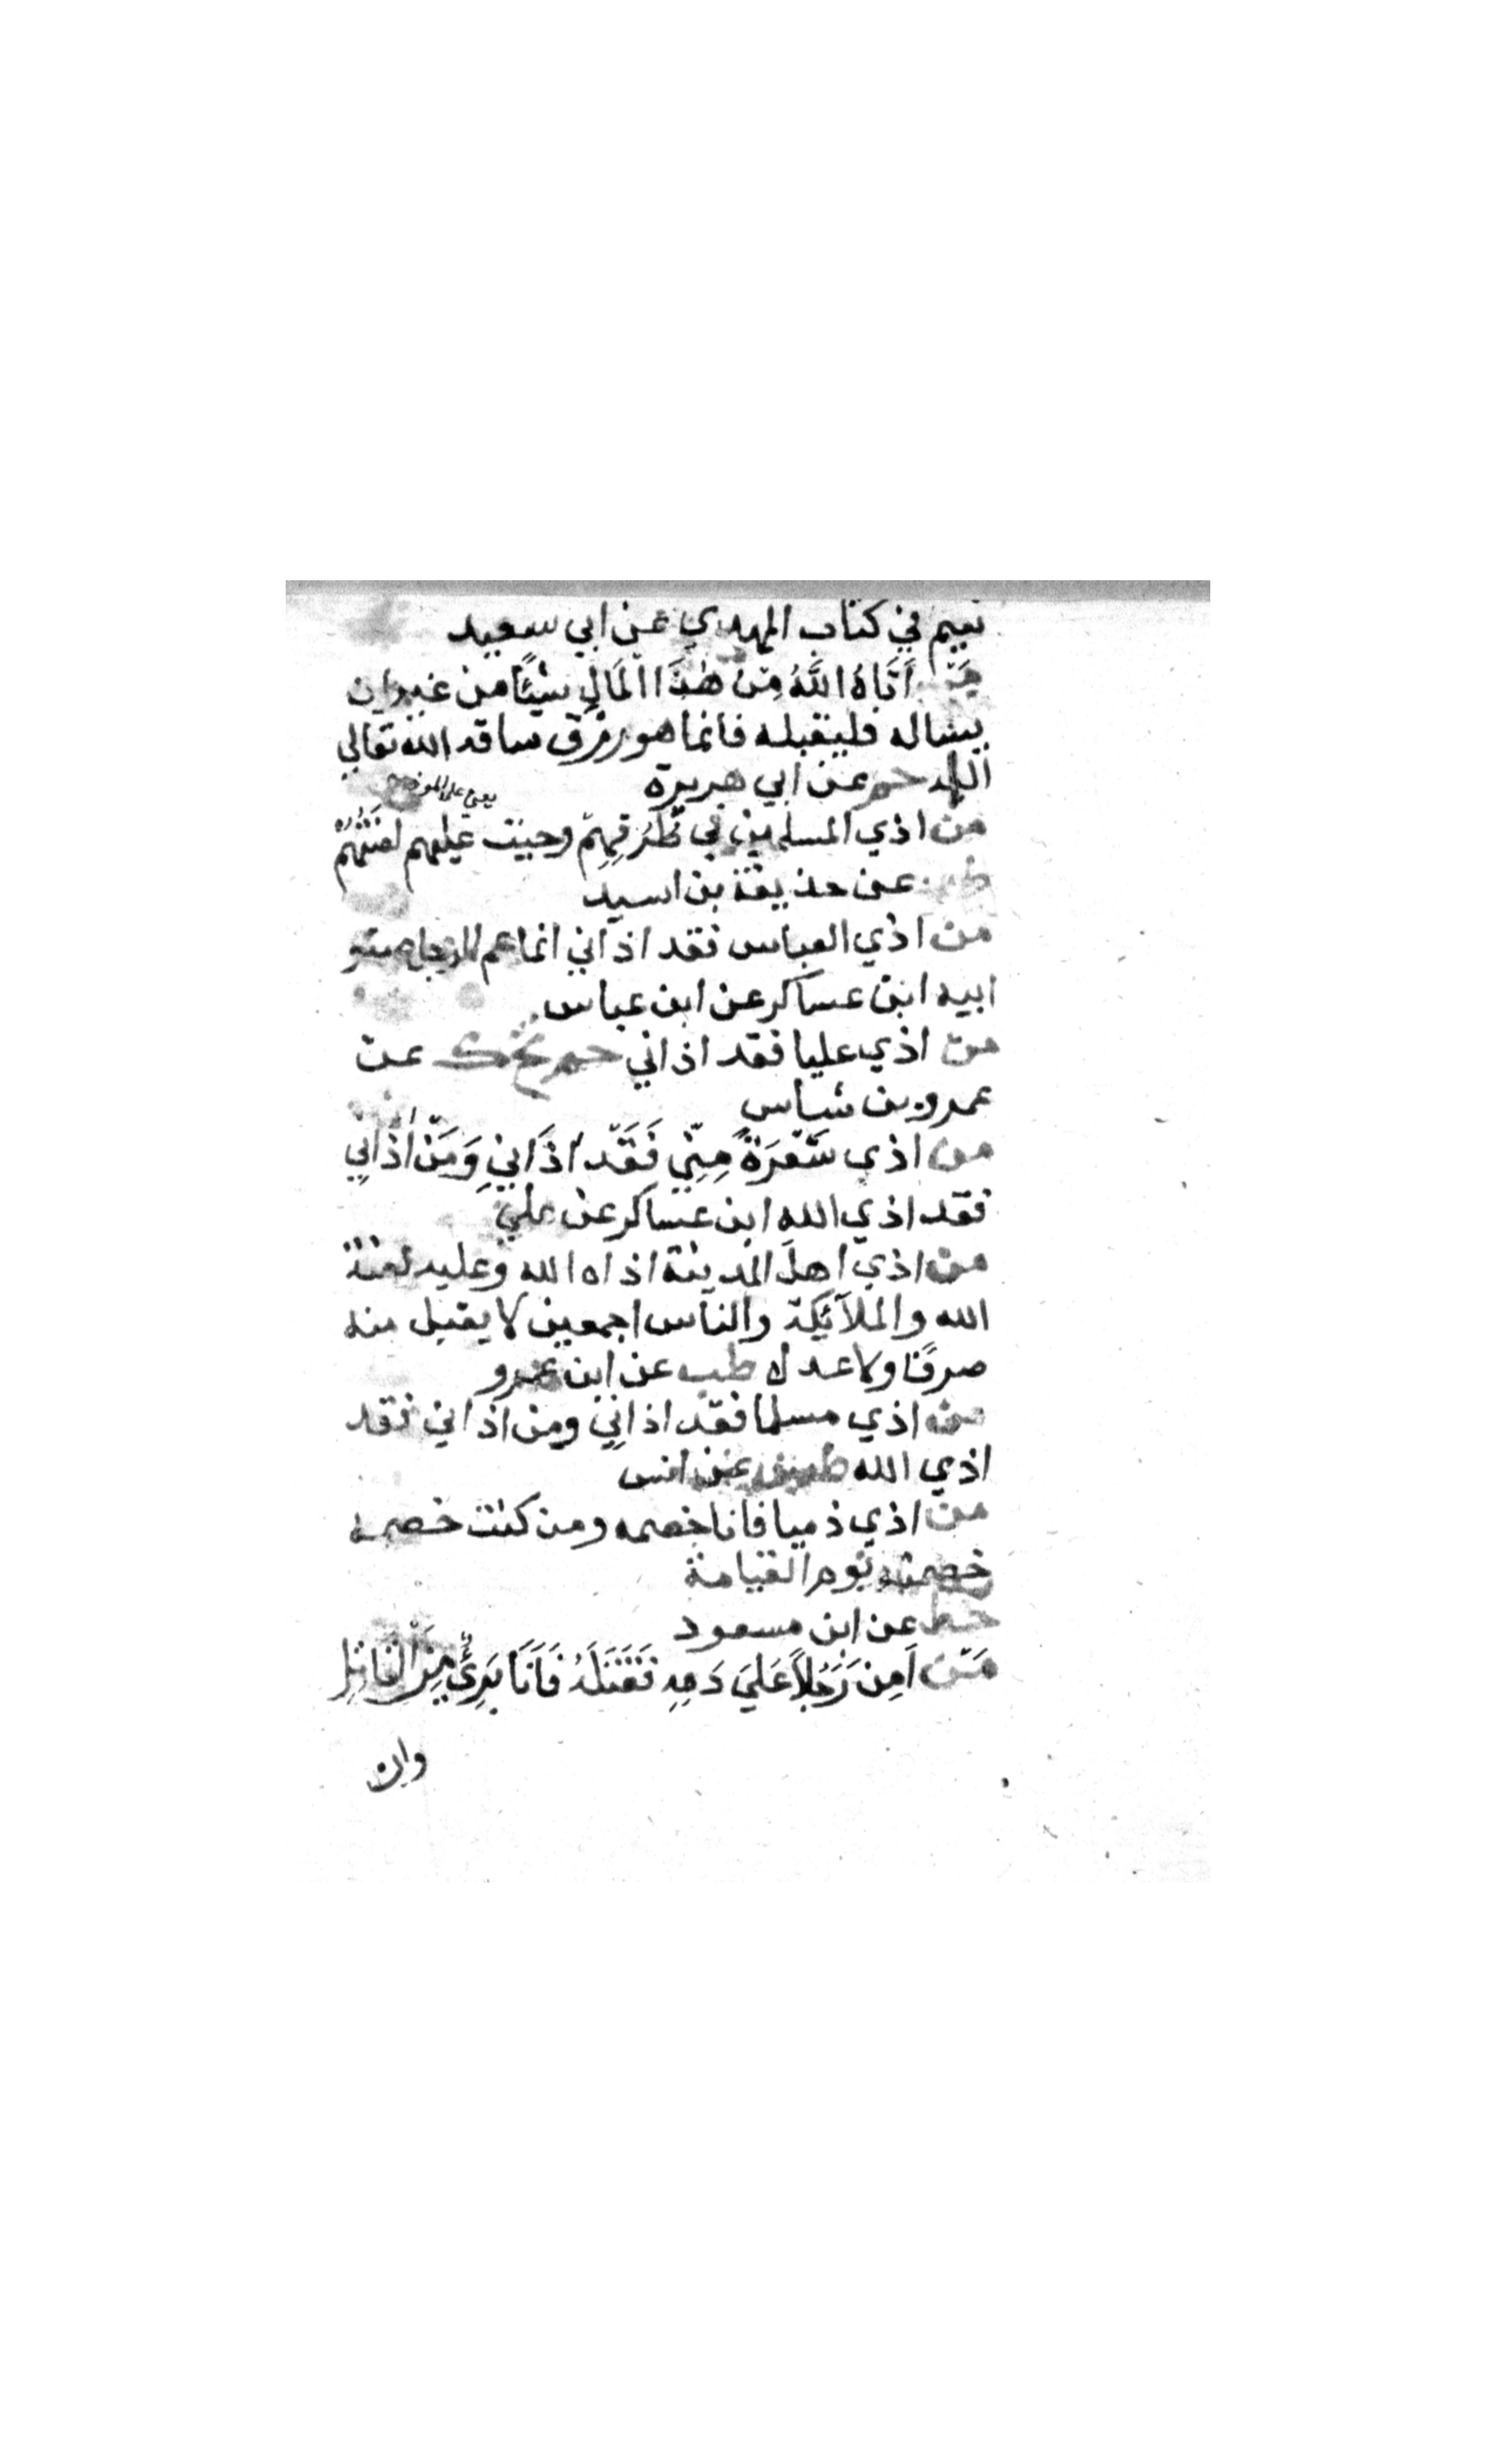 نعيم في كتاب المهدي عن ابي سعيد
مَن اَتَاهُ اللَّهُ مِنْ هٰذَا المَالِ شيْئًا من غير ان
يسئاله فليقبله فانما هو رزق ساقه الله تعالي
اليه حم عن ابي هريرة
يعني علي الموذي
من اذي المسلمين في طُرُقِهِمْ وجبت عليهم لعنَتُهُمْ
طب عن حذيفة بن اسيد
من اذي العباس فقد اذاني انما عم الرجل صنو
ابيه ابن عساكر عن ابن عباس
من اذي عليا فقد اذاني حم تخ ك عن
عمرو بن شاس
من اذي شَعْرَةً مِنِّي فَقَدْ اذَانِي وَمَنْ اذَانِي
فقد اذي الله ابن عساكر عن علي
من اذي اهل المدينة اذاه الله وعليه لعنة
الله والملآئكة والناس اجمعين لا يقبل منه
صرفًا ولا عدل طب عن ابن عمرو
من اذي مسلما فقد اذاني ومن اذاني فقد
اذي الله طس عن انس
من اذي ذميا فانا خصمه ومن كنت خصمه
خصمته يوم القيامة
خط عن ابن مسعود
مَنْ اَمِنَ رَجُلاً عَلَي دَمِهِ فَقَتَلَهُ فَاَنَا بَرِئٌ مِنَ الْقَاتِلِ
وان